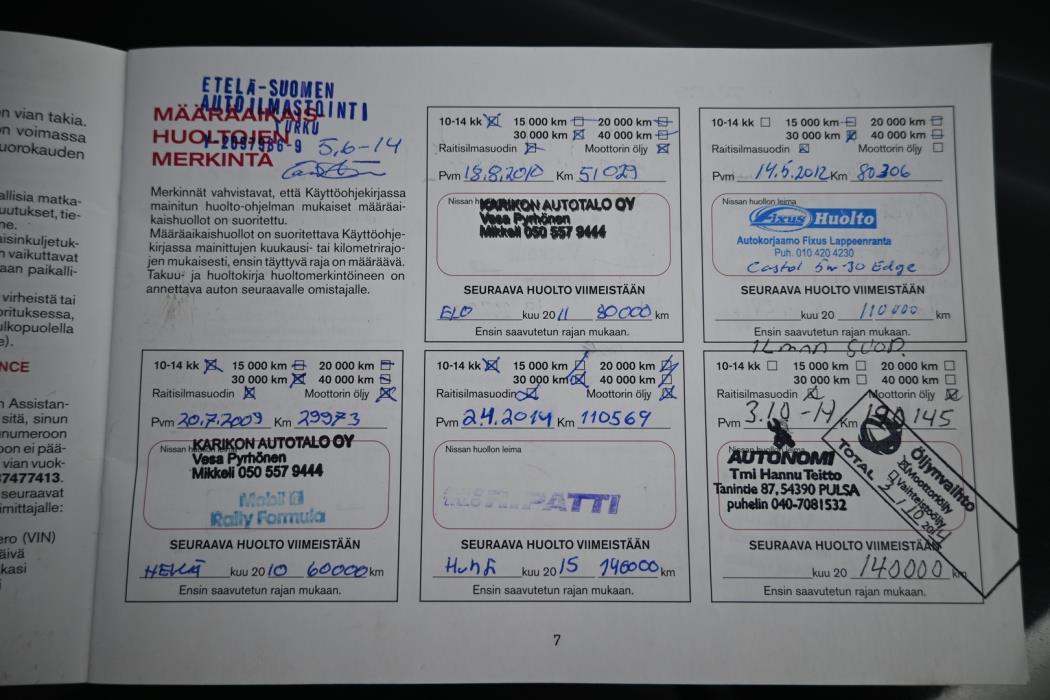 n vian takia.
n voimassa
uorokauden
allisia matka-
uutukset, tie-
ne.
aisinkuljetuk-
n vaikuttavat
aan paikalli-
virheistä tai
orituksessa,
ulkopuolella
e).
NCE
n Assistan-
sitä, sinun
numeroon
on ei pää-
vian vuok-
37477413.
seuraavat
imittajalle:
ero (VIN)
äivä
kasi
ETELÄ-SUOMEN
AUTOILMASTOINTI
TURKU
5,6-14
MÄÄRÄAIKAIS
HUOLTOJEN
MERKINTÄ
Merkinnät vahvistavat, että Käyttöohjekirjassa
mainitun huolto-ohjelman mukaiset määräai-
kaishuollot on suoritettu.
Määräaikaishuollot on suoritettava Käyttöohje-
kirjassa mainittujen kuukausi- tai kilometrirajo-
jen mukaisesti, ensin täyttyvä raja on määräävä.
Takuu- ja huoltokirja huoltomerkintöineen on
annettava auton seuraavalle omistajalle.
10-14 kk 15 000 km 20 000 km
30 000 km 40 000 km
Raitisilmasuodin Moottorin öljy
Pvm 18.8.2010 Km 51029
Nissan huollon leima
KARIKON AUTOTALO OY
Vesa Pyrhönen
Mikkeli 050 557 9444
SEURAAVA HUOLTO VIIMEISTÄÄN
ELO kuu 2011 80000 km
Ensin saavutetun rajan mukaan.
10-14 kk 15 000 km 20 000 km
30 000 km 40 000 km
Raitisilmasuodin Moottorin öljy
Pvm 14.5.2012 Km 80306
Nissan huollon leima
Fixus Huolto
Autokorjaamo Fixus Lappeenranta
Puh. 010 420 4230
Castol 5w-30 Edge
SEURAAVA HUOLTO VIIMEISTÄÄN
kuu 20 110000 km
Ensin saavutetun rajan mukaan.
10-14 kk 15 000 km 20 000 km
30 000 km 40 000 km
Raitisilmasuodin Moottorin öljy
Pvm 20.7.2009 Km 29973
Nissan huollon leima
KARIKON AUTOTALO OY
Vesa Pyrhönen
Mikkeli 050 557 9444
Mobil 1
Rally Formula
SEURAAVA HUOLTO VIIMEISTÄÄN
HEINÄ kuu 2010 60000 km
Ensin saavutetun rajan mukaan.
10-14 kk 15 000 km 20 000 km
30 000 km 40 000 km
Raitisilmasuodin Moottorin öljy
Pvm 2.4.2014 Km 110569
Nissan huollon leima
SEURAAVA HUOLTO VIIMEISTÄÄN
Huhti kuu 2015 140000 km
Ensin saavutetun rajan mukaan.
ILman SUOD.
10-14 kk 15 000 km 20 000 km
30 000 km 40 000 km
Raitisilmasuodin Moottorin öljy
Pvm 3.10-14 Km
Nissan huollon leima
AUTONOMI
Tmi Hannu Teitto
Taninde 87, 54390 PULSA
puhelin 040-7081532
TOTAL
Öljynvaihto
Moottoriöljy
Vaihteistoöljy
3.10 2014
SEURAAVA HUOLTO VIIMEISTÄÄN
kuu 20 140000 km
Ensin saavutetun rajan mukaan.
7